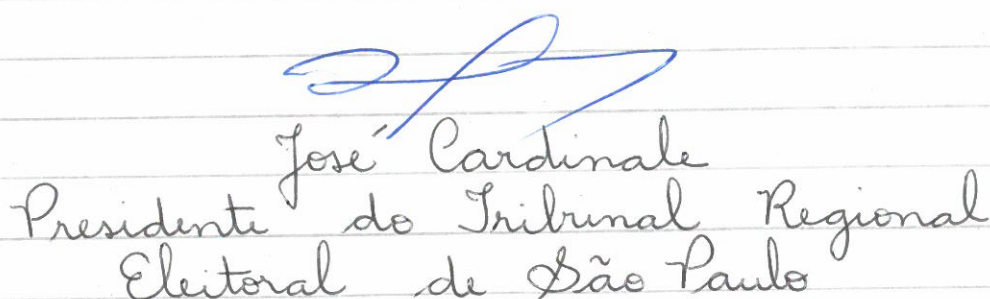 José Cardinale
Presidente do Tribunal Regional
Eleitoral de São Paulo